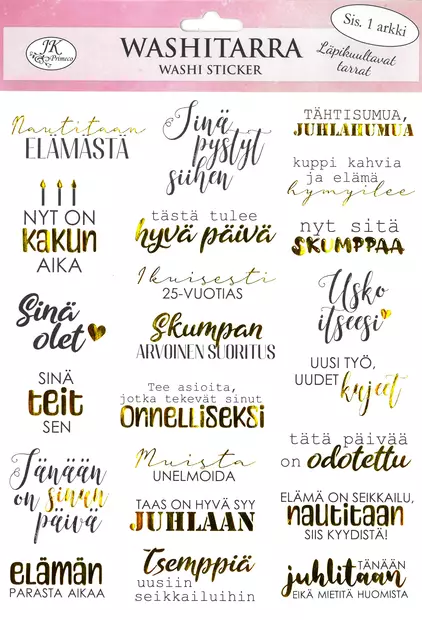 JK
Primeco
WASHITARRA
WASHI STICKER
Sis. 1 arkki
Läpikuultavat
tarrat
Nautitaan
ELÄMÄSTÄ
Sinä
pystyt
siihen
TÄHTISUMUA,
JUHLAHUMUA
kuppi kahvia
ja elämä
hymyilee
NYT ON
kakun
AIKA
tästä tulee
hyvä päivä
nyt sitä
SKUMPPAA
Ikuisesti
25-VUOTIAS
Sinä
olet
Skumpan
ARVOINEN SUORITUS
Usko
itseesi
SINÄ
teit
SEN
Tee asioita,
jotka tekevät sinut
onnelliseksi
UUSI TYÖ,
UUDET kujeet
tätä päivää
on odotettu
Tänään
on sinun
päivä
Muista
UNELMOIDA
TAAS ON HYVÄ SYY
JUHLAAN
ELÄMÄ ON SEIKKAILU,
nautitaan
SIIS KYYDISTÄ!
elämän
PARASTA AIKAA
Tsemppiä
uusiin
seikkailuihin
TÄNÄÄN
juhlitaan
EIKÄ MIETITÄ HUOMISTA